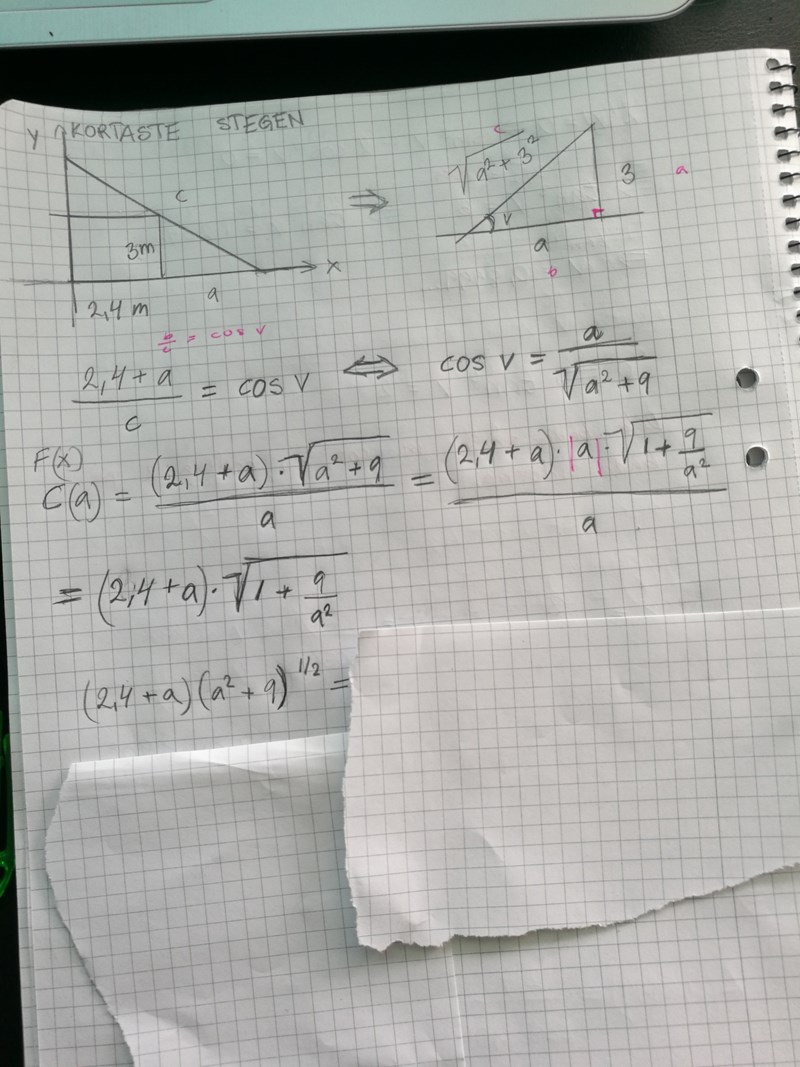 KORTASTE STEGEN
y
c
3m
x
a
2,4 m
⇒
c
√a² + 3²
3
a
v
a
b
b/c = cos v
(2,4 + a)/c = cos v ⇔ cos v = a/√(a² + 9)
F(x)
C(a) = (2,4 + a) · √(a² + 9) / a = (2,4 + a) · |a| · √(1 + 9/a²) / a
= (2,4 + a) · √(1 + 9/a²)
(2,4 + a)(a² + 9)^1/2 =